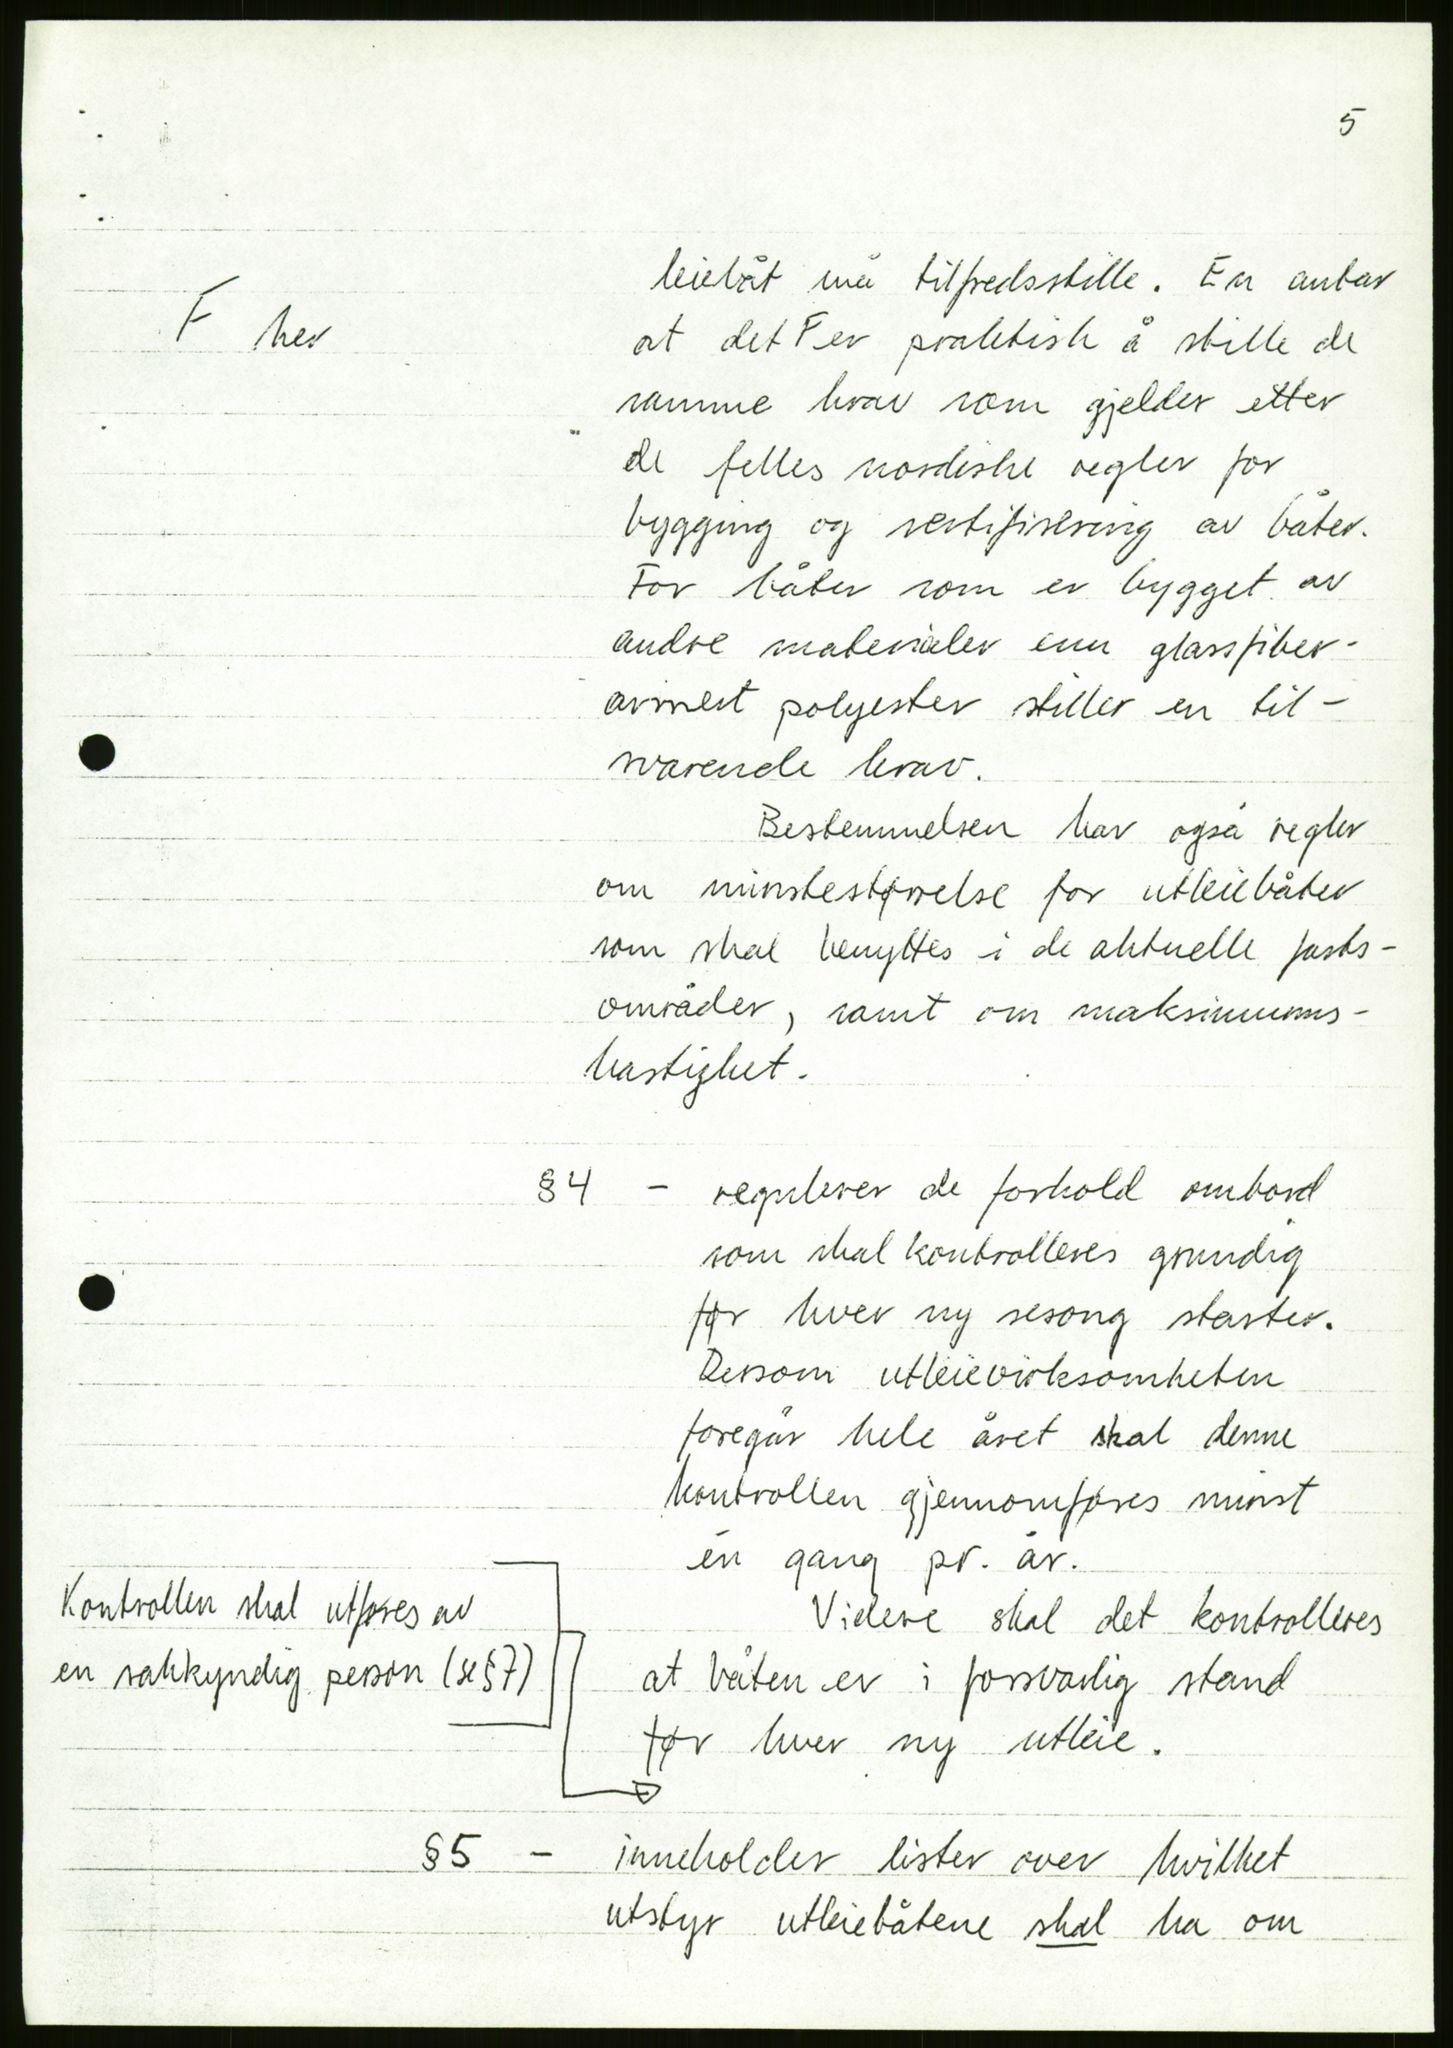 5
leiebåt må tilfredsstille. En antar
F her
at det F er praktisk å stille de
samme krav som gjelder etter
de felles nordiske regler for
bygging og sertifisering av båter.
For båter som er bygget av
andre materialer enn glassfiber-
armert polyester stiller en til-
svarende krav.
Bestemmelsen har også regler
om minstestørrelse for utleiebåter
som skal benyttes i de aktuelle farts-
områder, samt om maksimums-
hastighet.
§4 - regulerer de forhold ombord
som skal kontrolleres grundig
før hver ny sesong starter.
Dersom utleievirksomheten
foregår hele året skal denne
kontrollen gjennomføres minst
én gang pr. år.
Kontrollen skal utføres av
en sakkyndig person (se §7)
Videre skal det kontrolleres
at båten er i forsvarlig stand
før hver ny utleie.
§5 - inneholder lister over hvilket
utstyr utleiebåtene skal ha om